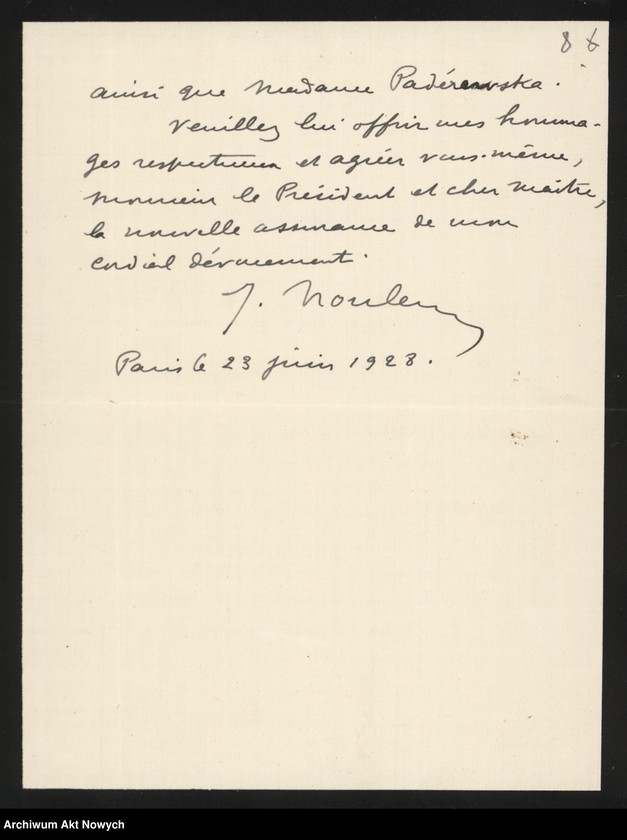 86
ainsi que Madame Padérewska.
Veuillez lui offrir mes homma-
ges respectueux et agréer vous-même,
Monsieur le Président et cher Maître,
la nouvelle assurance de mon
cordial dévouement.
J. Noulens
Paris le 23 juin 1928.
Archiwum Akt Nowych